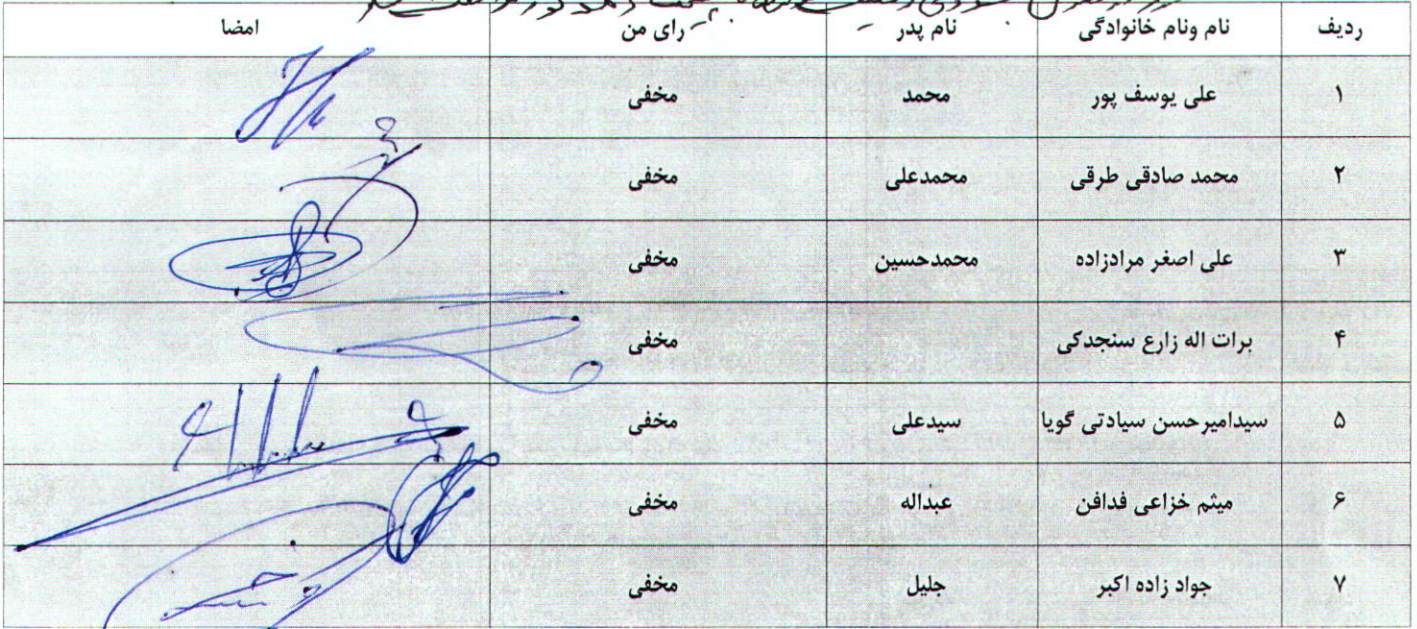 ردیف نام ونام خانوادگی نام پدر رای من امضا
۱ علی یوسف پور محمد مخفی
۲ محمد صادقی طرقی محمدعلی مخفی
۳ علی اصغر مرادزاده محمدحسین مخفی
۴ برات اله زارع سنجدکی مخفی
۵ سیدامیرحسن سیادتی گویا سیدعلی مخفی
۶ میثم خزاعی فدافن عبداله مخفی
۷ جواد زاده اکبر جلیل مخفی